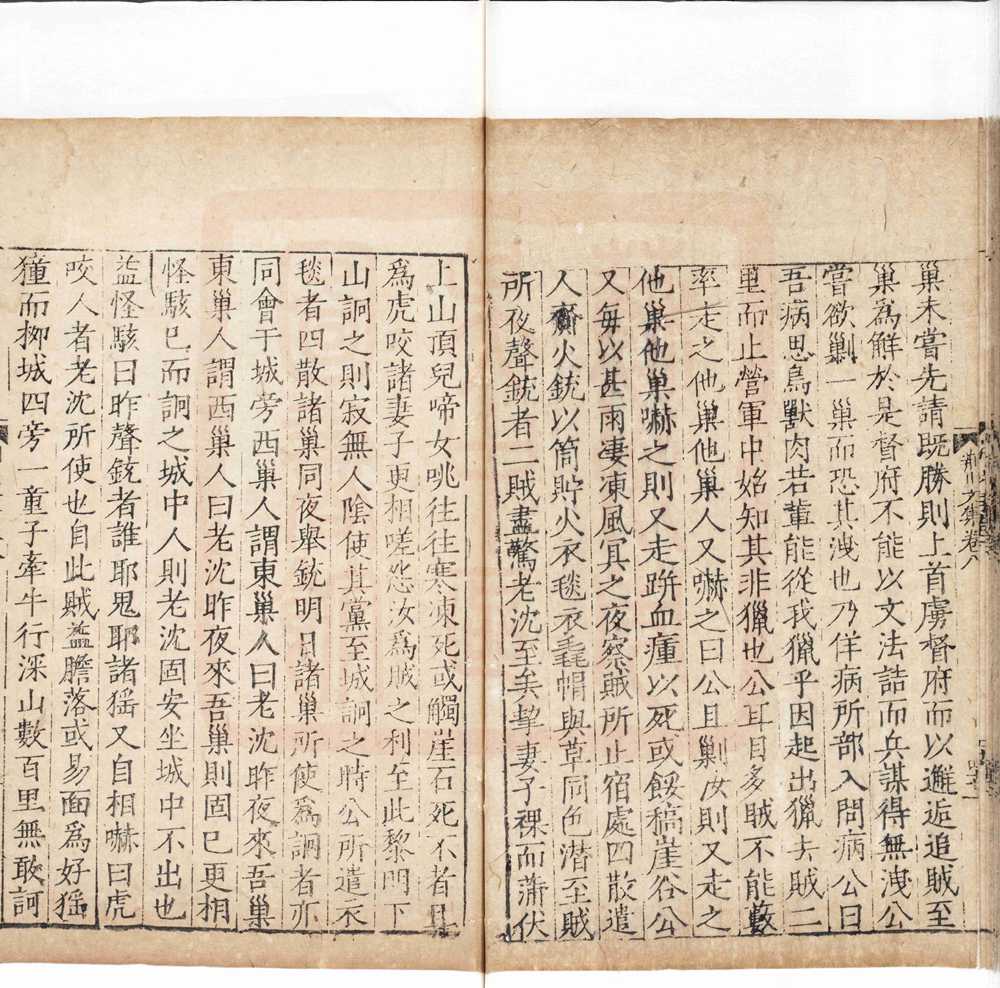 巢未嘗先請既勝則上首虜督府而以邂逅追賊至
巢爲鮮於是督府不能以文法詰而兵謀得無洩公
嘗欲剿一巢而恐其洩也乃佯病所部入問病公曰
吾病思鳥獸肉若輩能從我獵乎因起出獵去賊二
里而止營軍中始知其非獵也公耳目多賊不能數
率走之他巢他巢人又嚇之曰公且剿汝則又走之
他巢他巢嚇之則又走跰血瘇以死或餒稿崖谷公
又每以甚雨凄凍風冥之夜察賊所止宿處四散遣
人齎火銃以筒貯火衣毯衣毳帽與草同色潛至賊
所夜聲銃者二賊盡驚老沈至矣挈妻子裸而蒲伏
荊川文集卷八
上山頂兒啼女咷往往寒凍死或觸崖石死不者且
爲虎咬諸妻子更相嗟怨汝爲賊之利至此黎明下
山詗之則寂無人陰使其黨至城詗之時公所遣衣
毯者四散諸巢同夜舉銃明日諸巢所使爲詗者亦
同會于城旁西巢人謂東巢人曰老沈昨夜來吾巢
東巢人謂西巢人曰老沈昨夜來吾巢則固已更相
怪駭已而詗之城中人則老沈固安坐城中不出也
益怪駭曰昨聲銃者誰耶鬼耶諸猺又自相嚇曰虎
咬人者老沈所使也自此賊益膽落或易面爲好猺
獞而柳城四旁一童子牽牛行深山數百里無敢訶